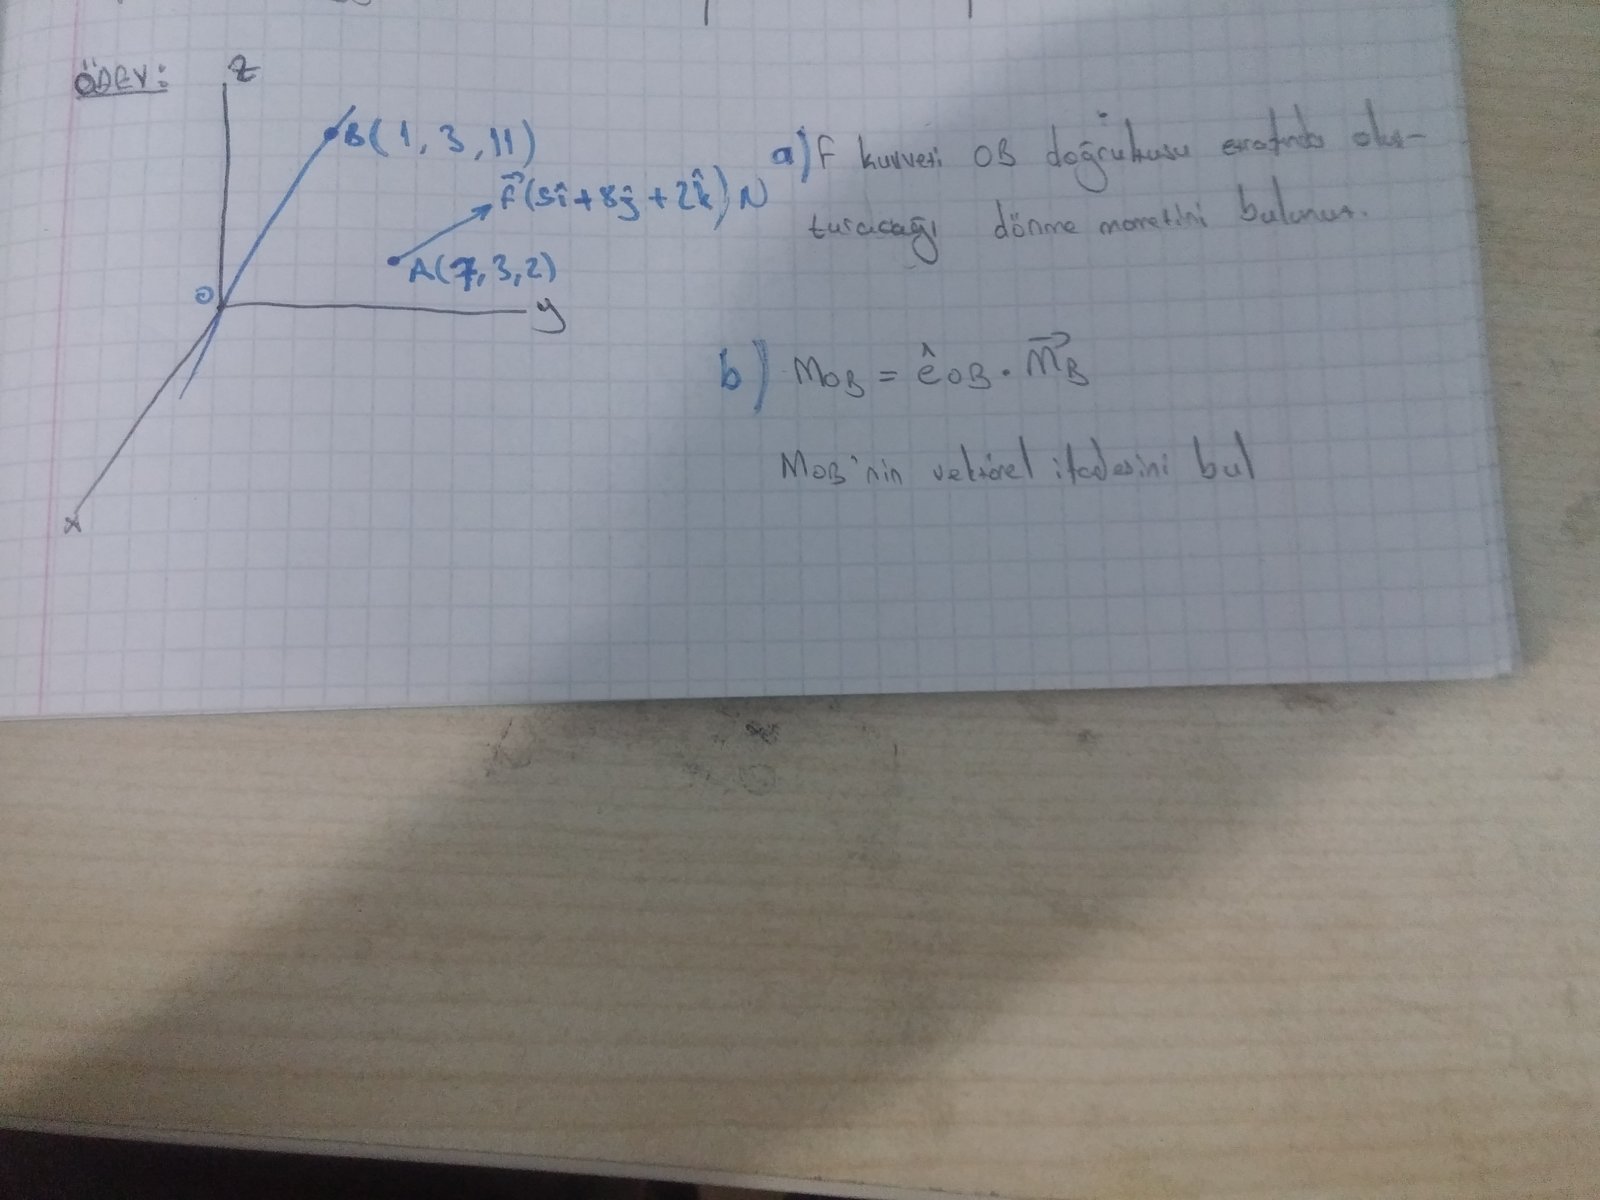 ÖDEV:
z
B(1, 3, 11)
F(5î+8ĵ+2k̂)N
A(7,3,2)
O
y
x
a) F kuvveti OB doğrultusu etrafında oluş-
turacağı dönme momentini bulunuz.
b) MOB = êOB · MB
MOB'nin vektörel ifadesini bul